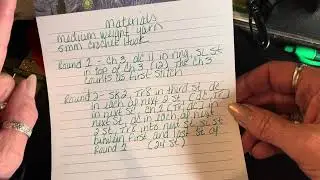 Materials
medium weight yarn
5mm crochet hook
Round 1 - Ch 3, dc 11 in ring, SL St
in top of Ch 3 (12) The Ch 3
counts as first stitch
Round 2 - SK2, TrS in third St, dc
in each of next 2 St (dc, Tr)
in next St, Ch 1 (Tr, dc) in
next St, dc in each of next
2 St, TrS into next St, SL St
between first and last St of
Round 1 (24 St)